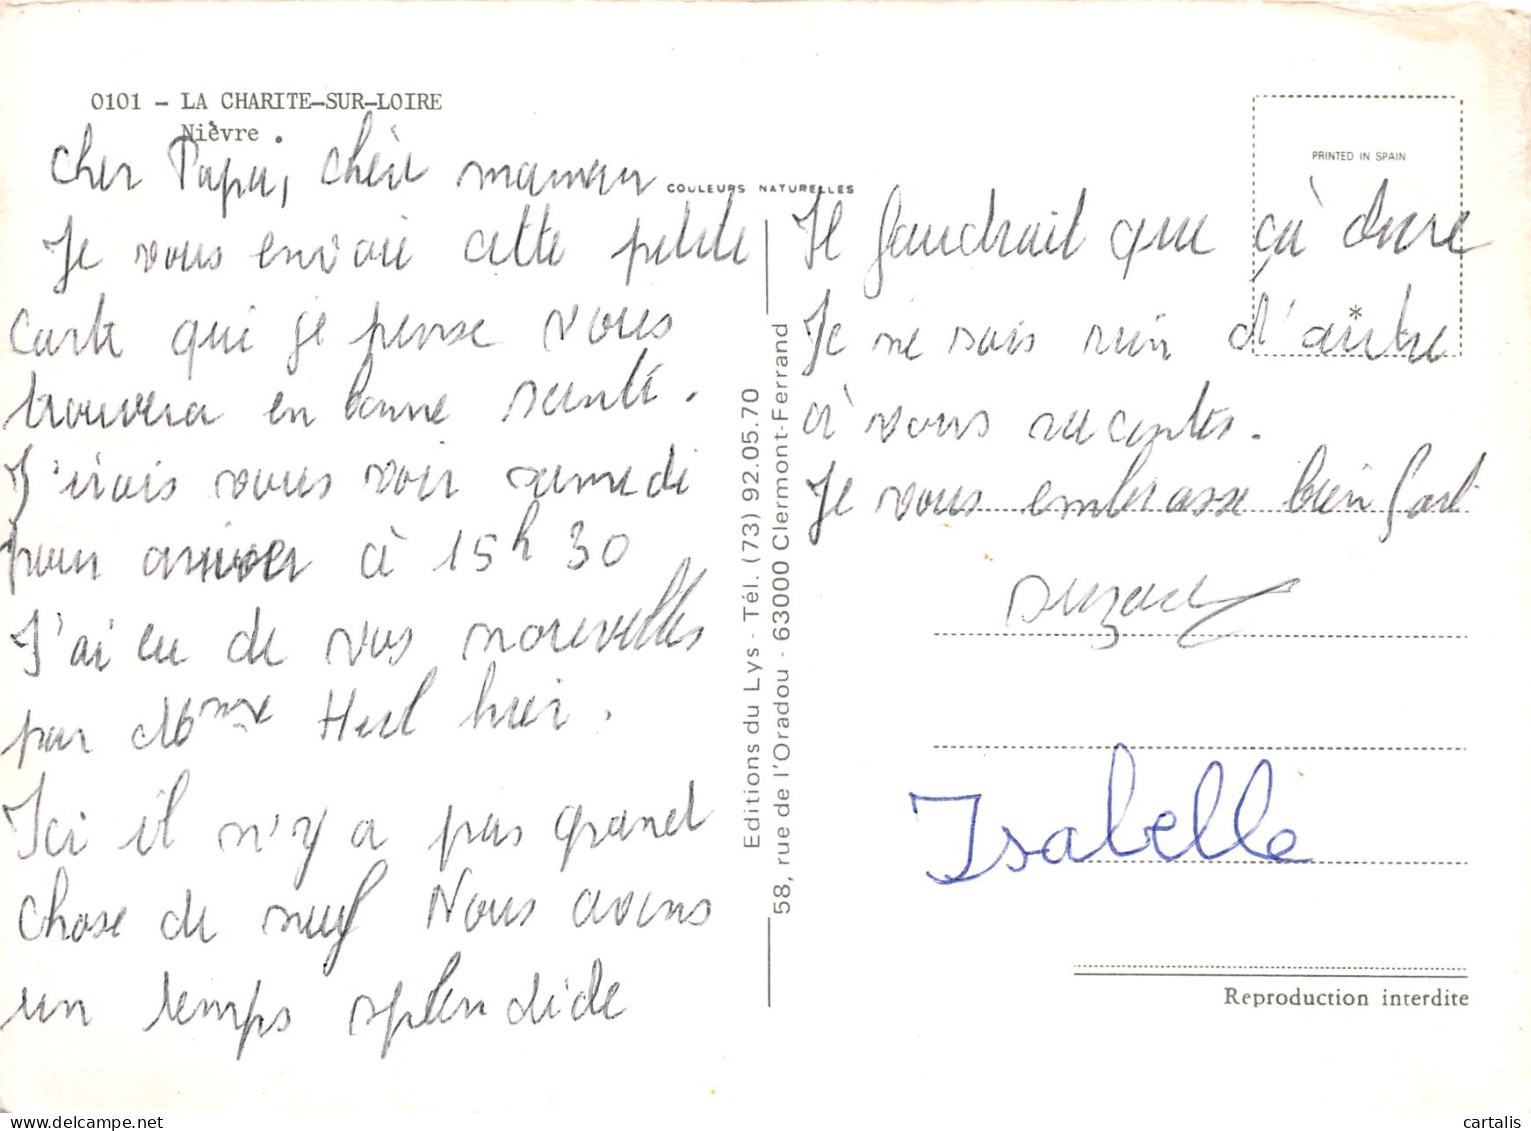 0101 - LA CHARITE-SUR-LOIRE
Nièvre .
COULEURS NATURELLES
PRINTED IN SPAIN
cher Papa, chère maman
Je vous envoie cette petite
carte qui je pense vous
trouvera en bonne santé.
J'irais vous voir samedi
pour arriver à 15h30
J'ai eu de vos nouvelles
par Mme hier.
Ici il n'y a pas grand
chose de neuf Nous avons
un temps splendide
Editions du Lys - Tél. (73) 92.05.70
58, rue de l'Oradou - 63000 Clermont-Ferrand
Il faudrait que çà dure
*
Je ne sais rien d'autre
à vous racontes.
Je vous embrasse bien fort
Isabelle
Reproduction interdite
cartalis